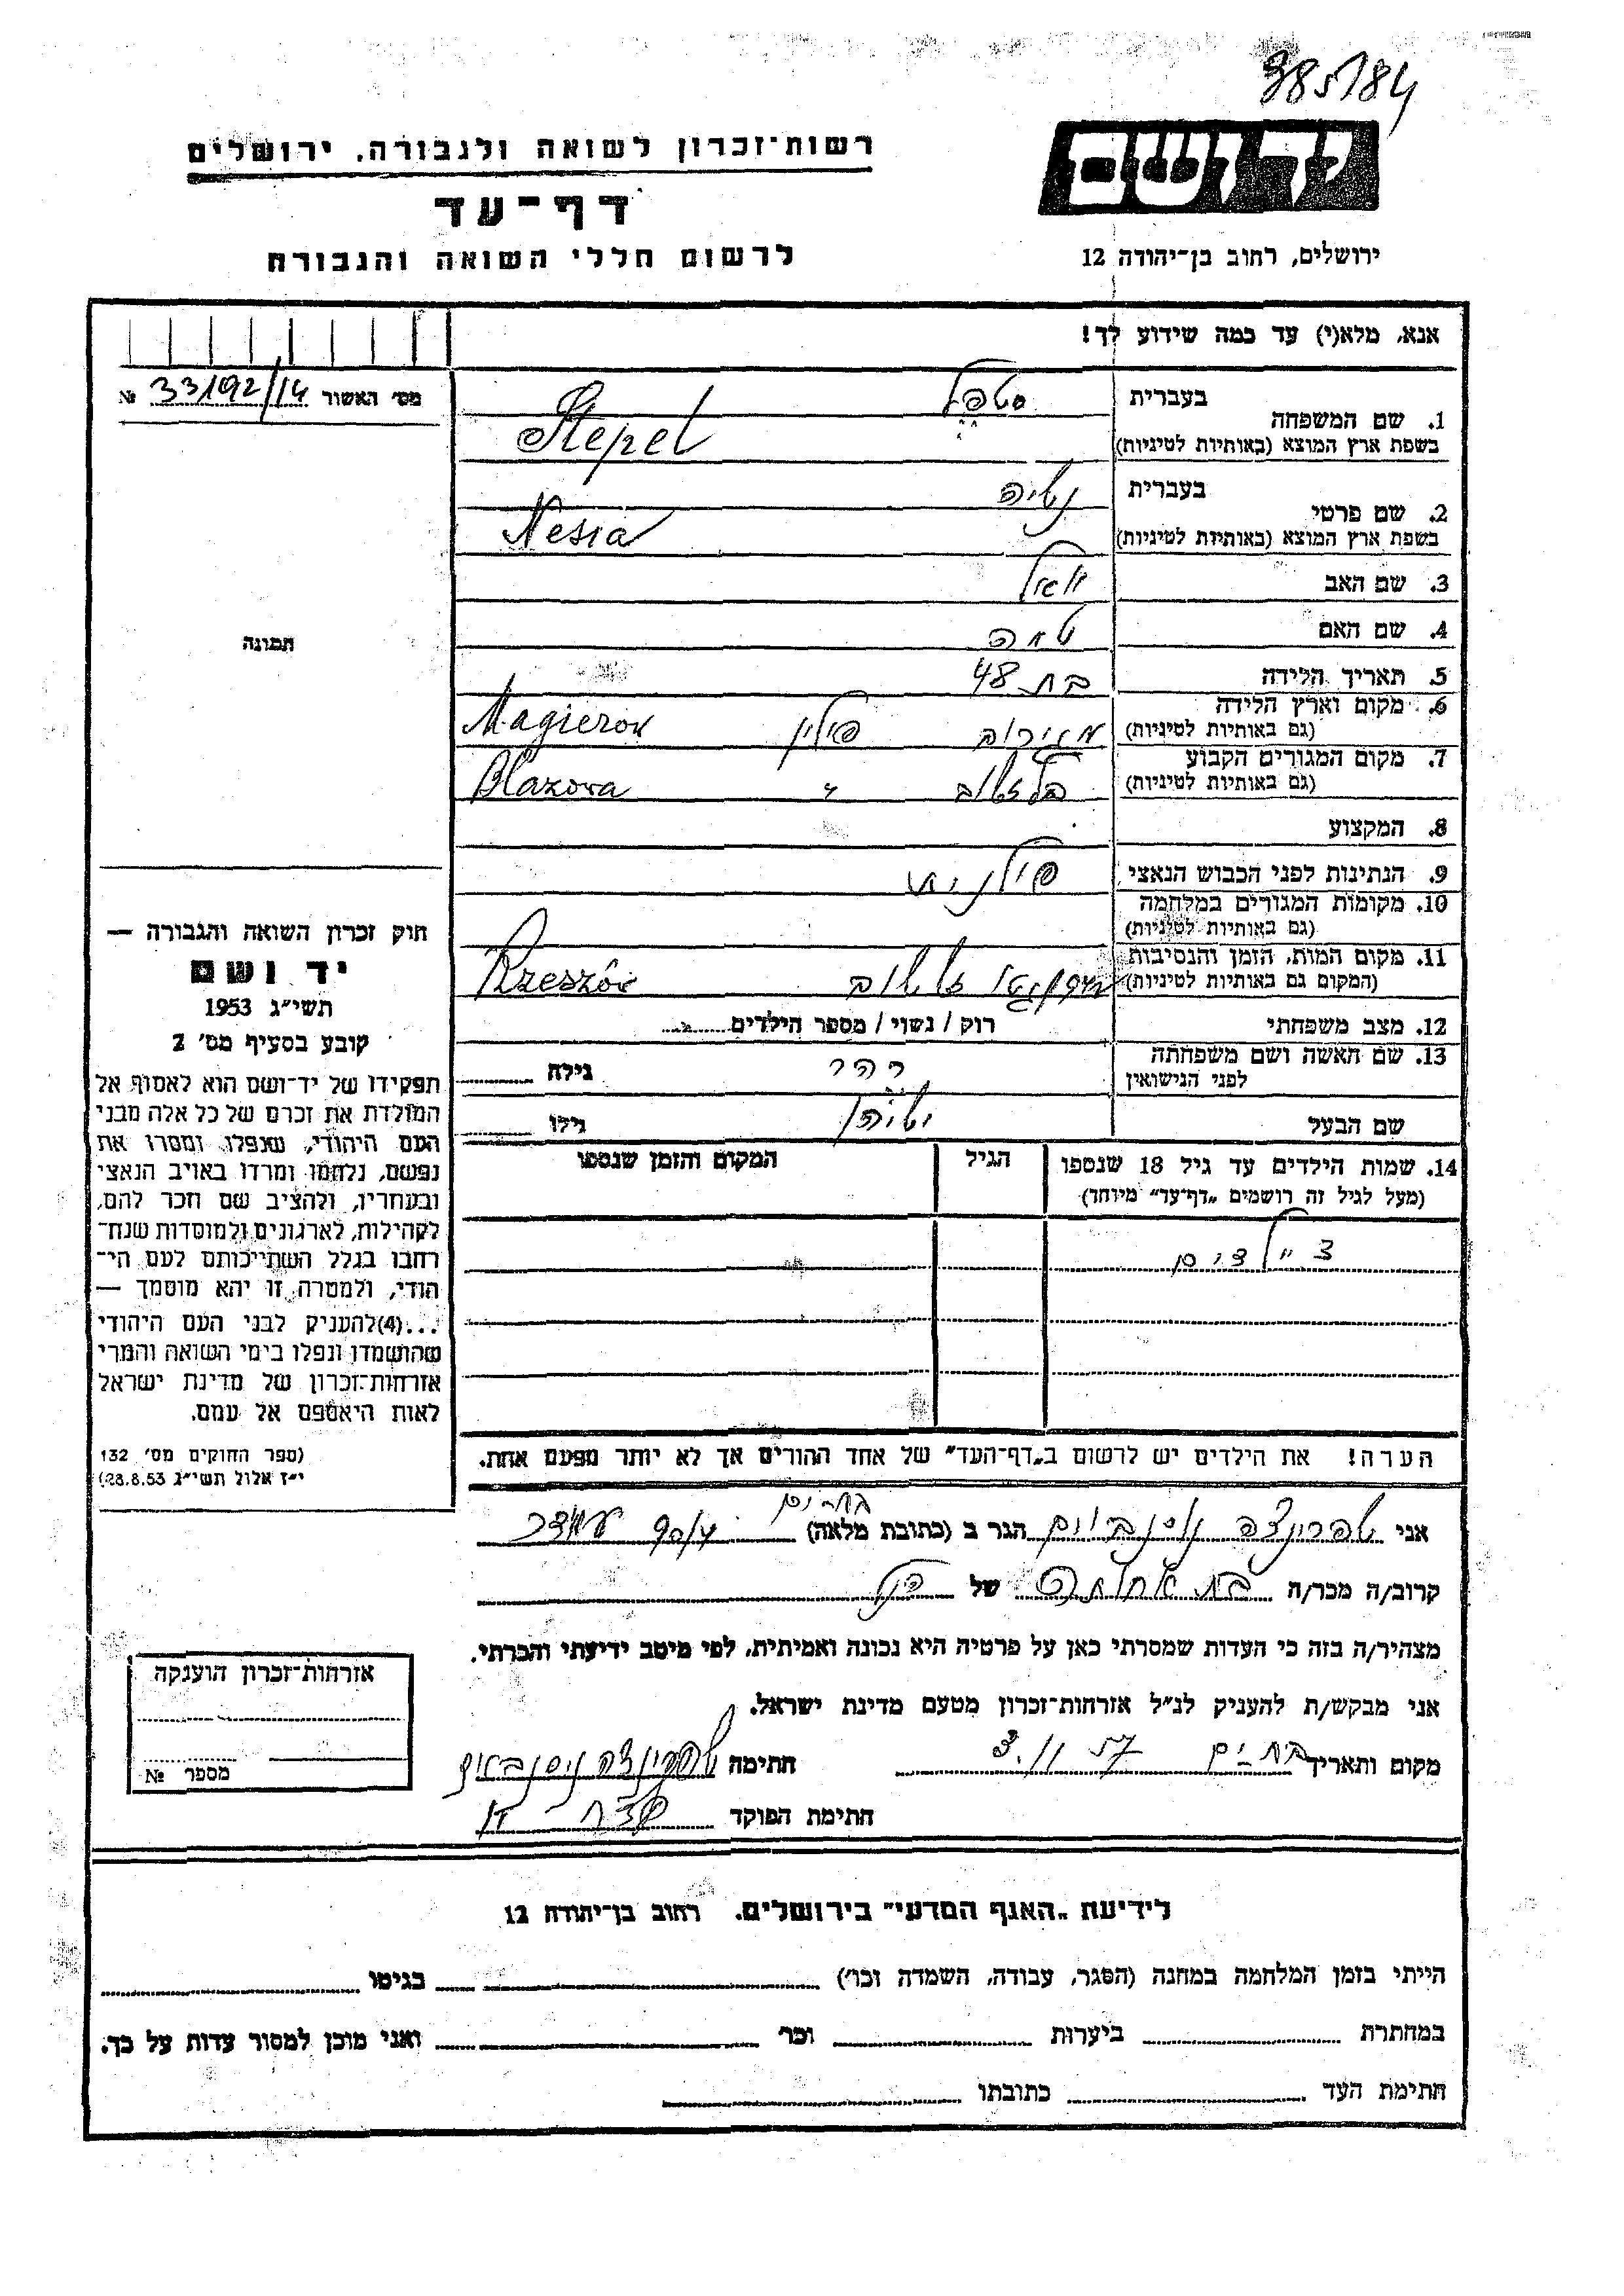 385184
רשות־זכרון לשואה ולגבורה, ירושלים
יד ושם
דף־עד
לרשום חללי השואה והגבורה
ירושלים, רחוב בן־יהודה 12
אנא, מלא(י) עד כמה שידוע לך!
מס׳ האשור 33192/14 №
1. שם המשפחה בעברית סטפל
בשפת ארץ המוצא (באותיות לטיניות) Stepel
2. שם פרטי בעברית
בשפת ארץ המוצא (באותיות לטיניות) Nesia
3. שם האב יואל
4. שם האם
5. תאריך הלידה בת 48
6. מקום וארץ הלידה (גם באותיות לטיניות) מגירוב פולין Magierov
7. מקום המגורים הקבוע (גם באותיות לטיניות) " Blazova
8. המקצוע
9. הנתינות לפני הכבוש הנאצי פולנית
10. מקומות המגורים במלחמה (גם באותיות לטיניות)
11. מקום המות, הזמן והנסיבות (המקום גם באותיות לטיניות) Rzeszów
12. מצב משפחתי רוק / נשוי / מספר הילדים
13. שם האשה ושם משפחתה לפני הנישואין גילה
שם הבעל גילו
14. שמות הילדים עד גיל 18 שנספו
(מעל לגיל זה רושמים „דף־עד" מיוחד)
הגיל
המקום והזמן שנספו
הערה! את הילדים יש לרשום ב„דף־העד" של אחד ההורים אך לא יותר מפעם אחת.
תמונה
חוק זכרון השואה והגבורה —
יד ושם
תשי״ג 1953
קובע בסעיף מס׳ 2
תפקידו של יד־ושם הוא לאסוף אל
המולדת את זכרם של כל אלה מבני
העם היהודי, שנפלו, ומסרו את
נפשם, נלחמו ומרדו באויב הנאצי
ובעוזריו, ולהציב שם וזכר להם,
לקהילות, לארגונים ולמוסדות שנח־
רבו בגלל השתייכותם לעם הי־
הודי, ולמטרה זו יהא מוסמך —
...(4)להעניק לבני העם היהודי
שהושמדו ונפלו בימי השואה והמרי
אזרחות־זכרון של מדינת ישראל
לאות היאספם אל עמם.
(ספר החוקים מס׳ 132
י״ז אלול תשי״ג 28.8.53)
אני הגר ב (כתובת מלאה) בת־ים
קרוב/ה מכר/ה של הנ״ל
מצהיר/ה בזה כי העדות שמסרתי כאן על פרטיה היא נכונה ואמיתית, לפי מיטב ידיעתי והכרתי.
אני מבקש/ת להעניק לנ״ל אזרחות־זכרון מטעם מדינת ישראל.
מקום ותאריך בת־ים 3.11.57 חתימה
חתימת הפוקד
אזרחות־זכרון הוענקה
מספר №
לידיעת „האגף המדעי" בירושלים, רחוב בן־יהודה 12
הייתי בזמן המלחמה במחנה (הסגר, עבודה, השמדה וכו׳) בגיטו
במחתרת ביערות וכו׳ ואני מוכן למסור עדות על כך.
חתימת העד כתובתו